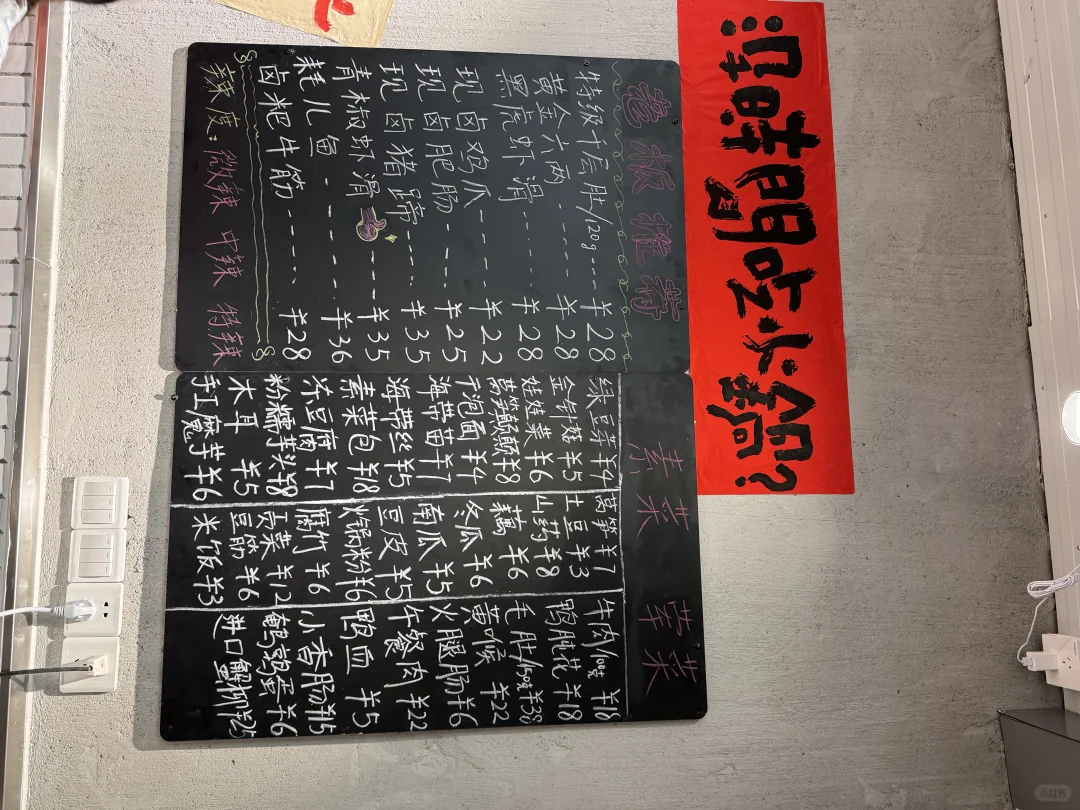 没時間吃火鍋?
老板推荐
特级千层肚/120g----¥28
黄金六两----¥28
黑虎虾滑----¥28
现卤鸡爪----¥22
现卤肥肠----¥25
现卤猪蹄----¥35
青椒虾滑----¥35
耗儿鱼----¥36
卤粑牛筋----¥28
辣度:微辣 中辣 特辣
素菜
绿豆芽¥4
金针菇¥5
娃娃菜¥6
莴笋颠颠¥8
广泡面¥4
海带苗¥7
海带丝¥5
素菜包¥18
冻豆腐¥7
粉糯芋头¥8
木耳¥5
手工魔芋¥6
莴笋¥7
土豆¥3
山药¥8
藕¥6
冬瓜¥6
南瓜¥5
豆皮¥5
火锅粉¥6
腐竹¥6
贡菜¥12
豆筋¥6
米饭¥3
荤菜
牛肉/100g¥18
鸭肫花¥18
毛肚/150g¥38
黄喉¥22
火腿肠¥6
午餐肉¥22
鸭血¥5
小香肠¥15
鹌鹑蛋¥6
进口蟹柳¥25
小红书